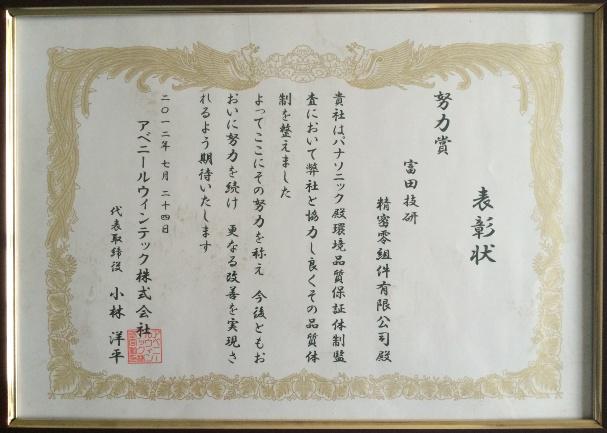 表彰状
努力賞
富田技研
精密零組件有限公司殿
貴社はパナソニック殿環境品質保証体制監
査において弊社と協力し良くその品質体
制を整えました
よってここにその努力を称え 今後ともお
おいに努力を続け 更なる改善を実現さ
れるよう期待いたします
二〇一二年 七月 二十四日
アベニールウィンテック株式会社
代表取締役 小林 洋平